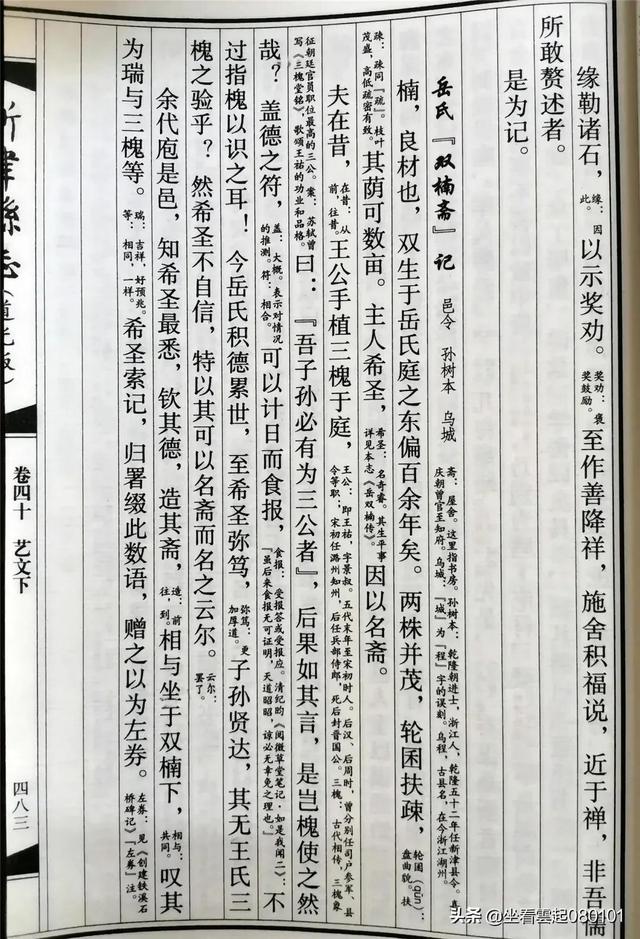 缘勒诸石，缘：因此。以示奖劝。奖劝：褒奖鼓励。至作善降祥，施舍积福说，近于禅，非吾儒
所敢赘述者。
是为记。
岳氏『双楠斋』记 邑令 孙树本 乌城 斋：屋舍。这里指书房。孙树本：乾隆朝进士，浙江人，乾隆五十二年任新津县令。嘉庆朝曾官至知府。乌城：『城』为『程』字的误刻。乌程，古县名，在今浙江湖州。
楠，良材也，双生于岳氏庭之东偏百余年矣。两株并茂，轮囷扶疎，轮囷（qūn）：盘曲貌。扶
疎：疎同『疏』。枝叶茂盛，高低疏密有致。其荫可数亩。主人希圣，希圣：名奇睿。其生平事详见本志《岳双楠传》。因以名斋。
夫在昔，在昔：从前，往昔。王公手植三槐于庭，王公：即王祜，字景叔。五代末年至宋初时人。后汉、后周时，曾分别任司户参军、县令等职；宋初任潞州知州，后任兵部侍郎，死后封晋国公。三槐：古代相传，三槐象
征朝廷官员职位最高的三公。案：苏轼曾写《三槐堂铭》，歌颂王祜的功业和品格。曰：『吾子孙必有为三公者』，后果如其言，是岂槐使之然
哉？盖德之符，盖：大概。表示对情况的推测。符：相合。可以计日而食报，食报：受报答或受报应。清纪昀《阅微草堂笔记·如是我闻二》：『虽后来食报无可证明，天道昭昭，谅必无幸免之理也。』不
过指槐以识之耳！今岳氏积德累世，至希圣弥笃，弥笃：更加厚道。子孙贤达，其无王氏三
槐之验乎？然希圣不自信，特以其可以名斋而名之云尔。云尔：罢了。
余代庖是邑，知希圣最悉，钦其德，造其斋，造：前往，到。相与坐于双楠下，相与：共同。叹其
为瑞与三槐等。瑞：吉祥，好预兆。等：相同，一样。希圣索记，归署缀此数语，赠之以为左券。左券：见《创建铁溪石桥碑记》『左券』注。
新津县志（道光版）
卷四十 艺文下
四八三
头条 @坐看雲起080101